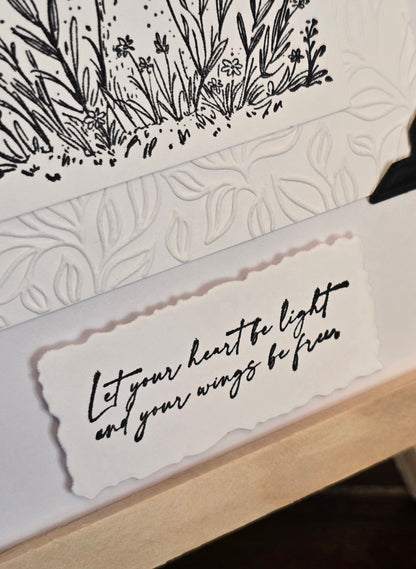 Let your heart be light
and your wings be free.